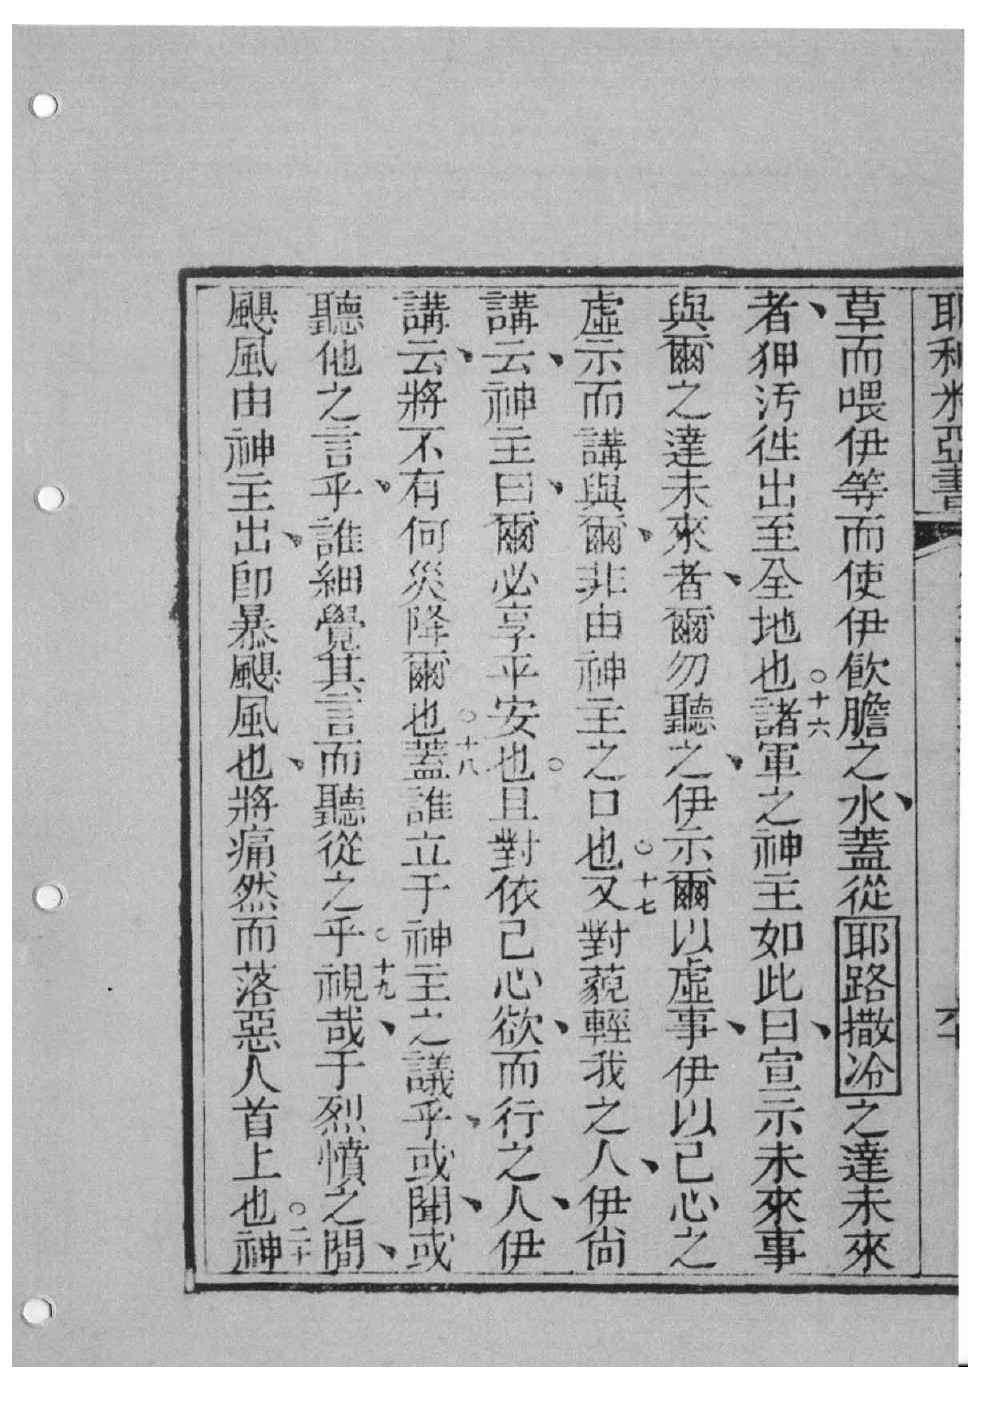 耶利米亞書
草而喂伊等而使伊飲膽之水、蓋從耶路撒冷之達未來
者、狎汚徃出至全地也○十六諸軍之神主如此曰、宣示未來事
與爾之達未來者、爾勿聽之、伊示爾以虛事、伊以己心之
虛示而講與爾、非由神主之口也○十七又對藐輕我之人、伊尙
講云、神主曰、爾必享平安也○且對依己心欲而行之人、伊
講云、將不有何災降爾也○十八蓋誰立于神主之議乎、或聞、或
聽他之言乎、誰細覺其言而聽從之乎○十九視哉、于烈憤之間、
颶風由神主出、卽暴颶風也、將痛然而落惡人首上也○二十神